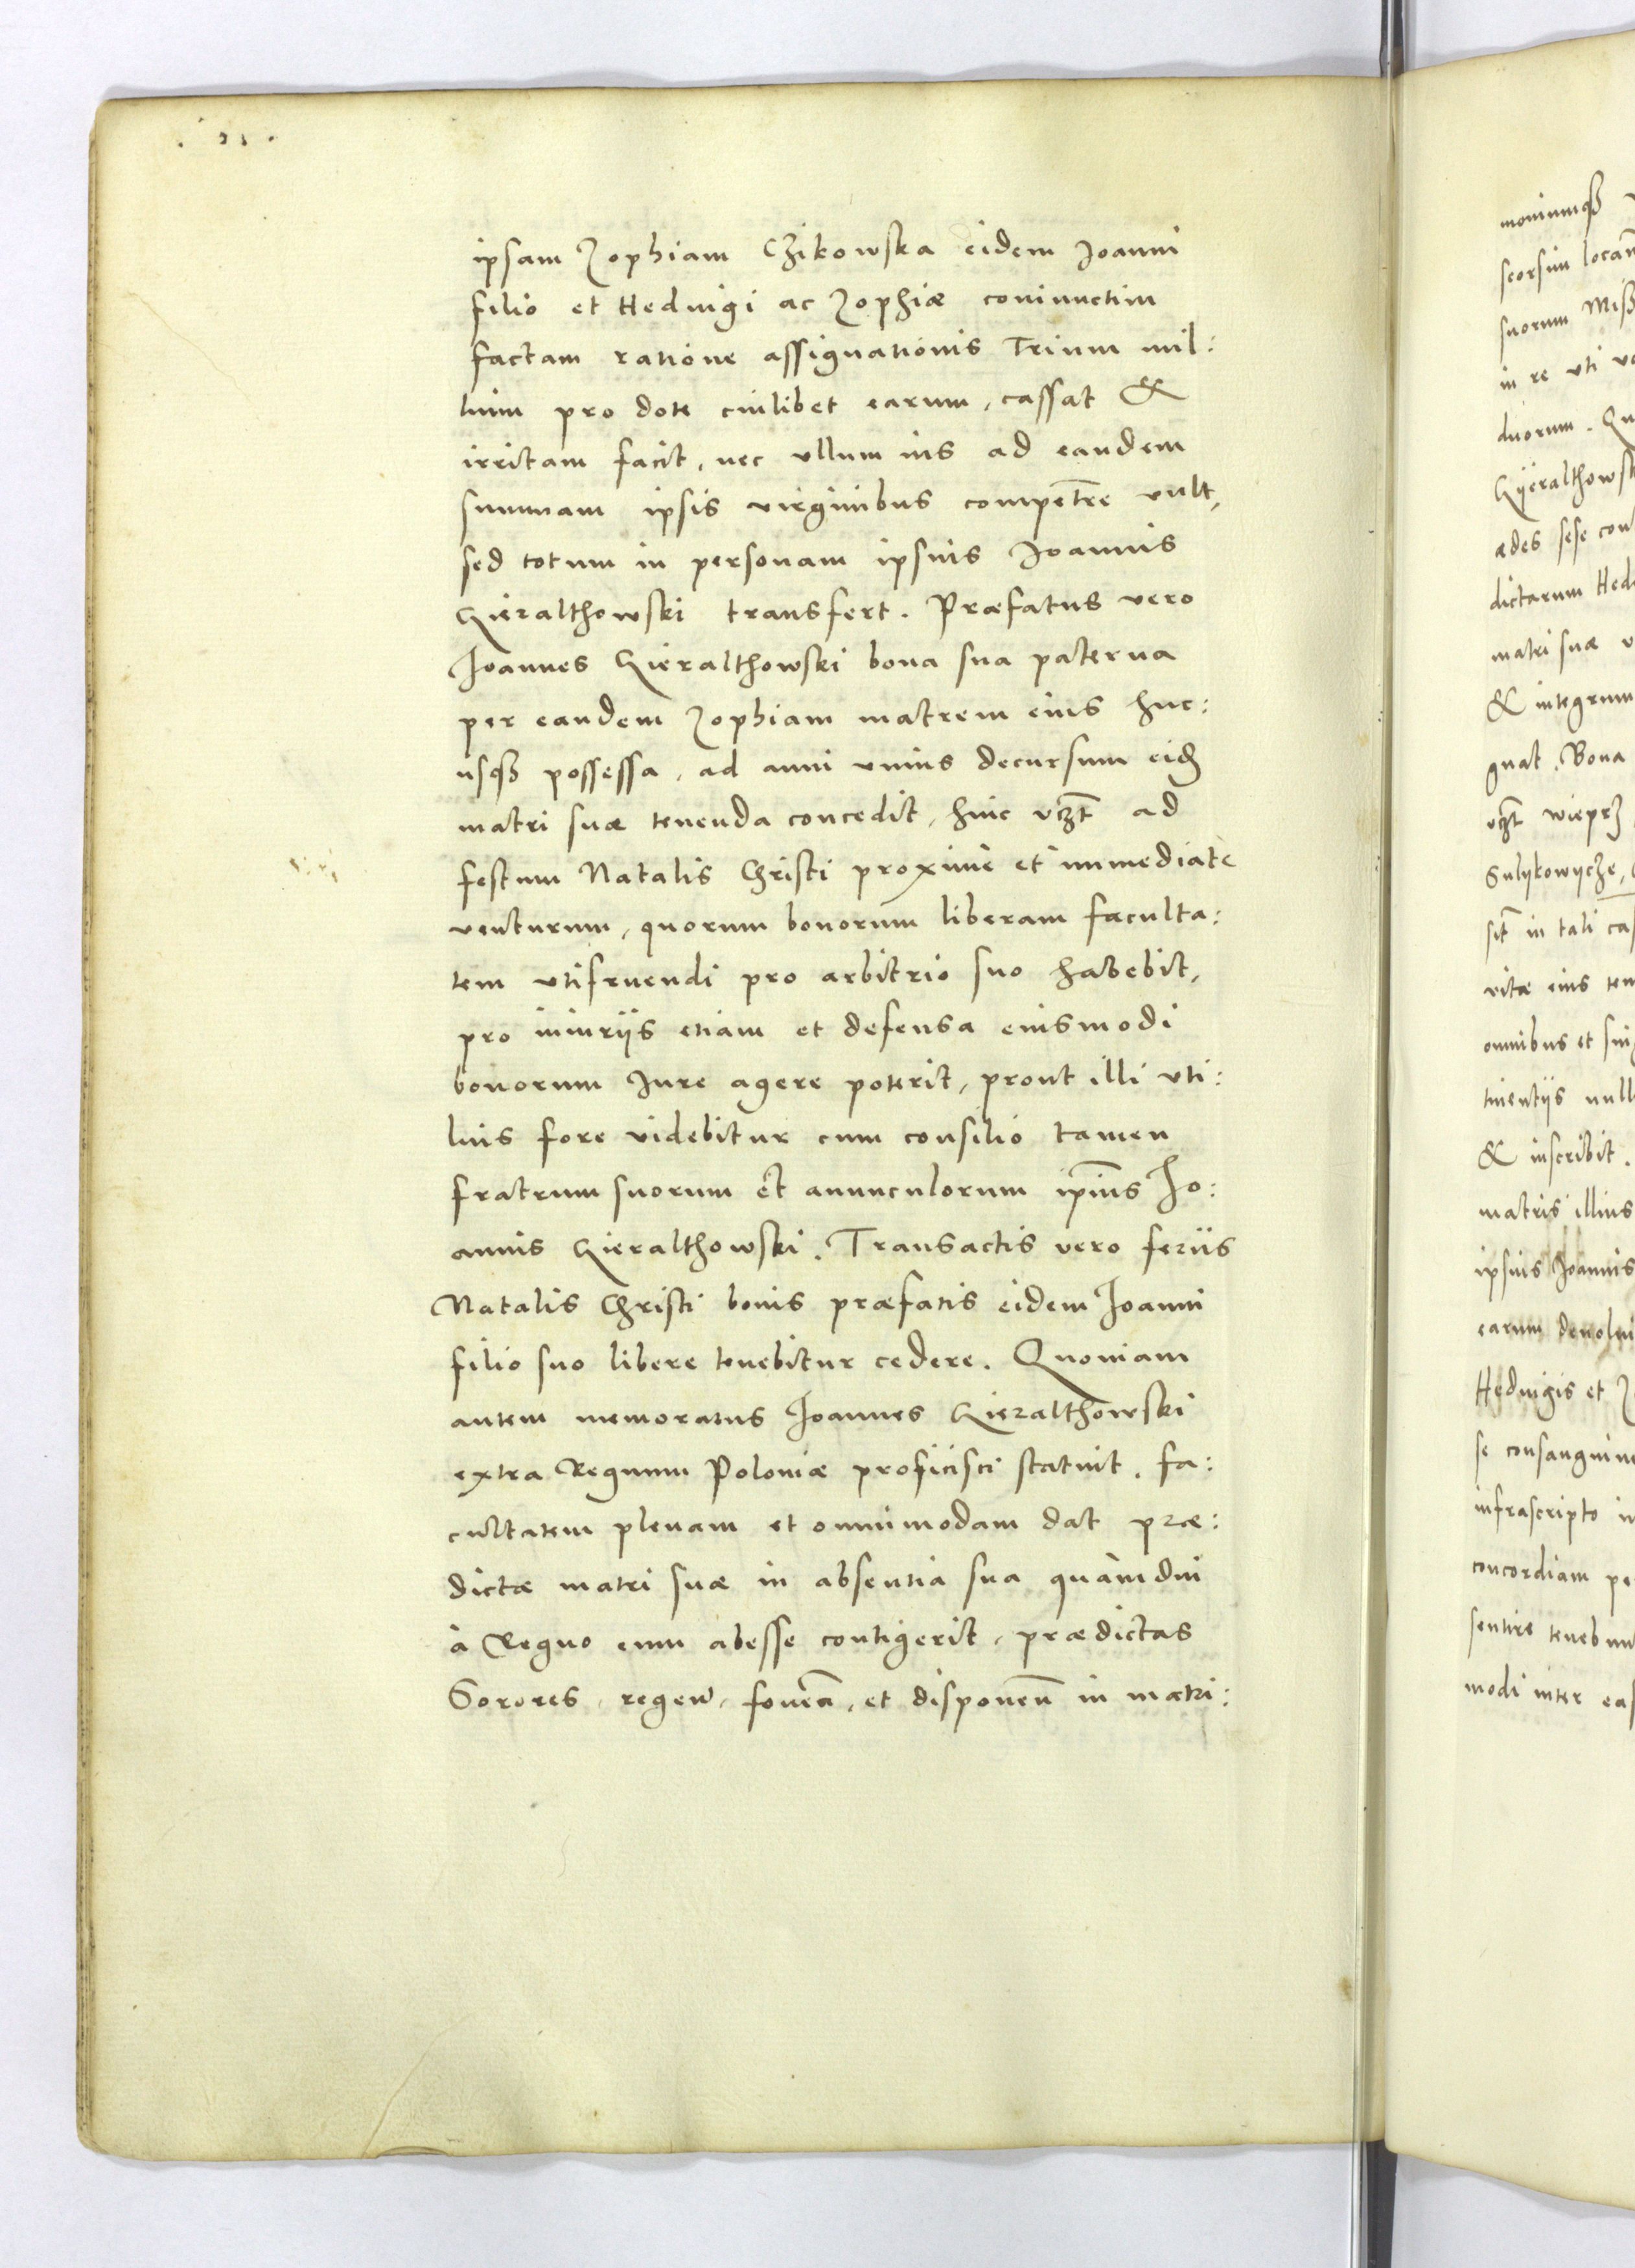 ipsam Zophiam Czikowska eidem Joanni
filio et Heduigi ac Zophiæ coniunctim
factam ratione assignationis Trium mil:
lium pro dote cuilibet earum, cassat &
irritam facit, nec vllum ius ad eandem
summam ipsis virginibus competere vult,
sed totum in personam ipsius Joannis
Gieralthowski transfert. Præfatus vero
Joannes Gieralthowski bona sua paterna
per eandem Zophiam matrem eius huc:
usqß possessa, ad anni vnius decursum eid
matri suæ tenenda concedit, hinc vczt ad
festum Natalis Christi proximè et immediatè
venturum, quorum bonorum liberam faculta:
tem vtifruendi pro arbitrio suo habebit,
pro iniuriis etiam et defensa eiusmodi
bonorum Jure agere poterit, prout illi vti:
lius fore videbitur cum consilio tamen
fratrum suorum et auunculorum ipius Jo:
annis Gieralthowski. Transactis vero feriis
Natalis Christi bonis præfatis eidem Joanni
filio suo libere tenebitur cedere. Quoniam
autem memoratus Joannes Gieralthowski
extra Regnum Poloniæ proficisci statuit, fa:
cultatem plenam et omnimodam dat præ:
dictæ matri suæ in absentia sua quàmdiu
à Regno eum abesse contigerit, prædictas
Sorores, regen, fouen, et disponen in matri:
moniumqß
seorsim locan
suorum
in re vti
duorum.
Gyeralthowsk
ædes sese con
dictarum Hed
matri suæ
& integrum
gnat. Bona
vczt Wieprz
Sulykowycze,
sit in tali cas
vitæ eius ten
omnibus et sing
tinentiis null
& inscribit.
matris illius
ipsius Joannis
earum deuolui
Heduigis et Z
se consanguine
infrascripto in
concordiam pe
sentire tenebun
modi inter eas